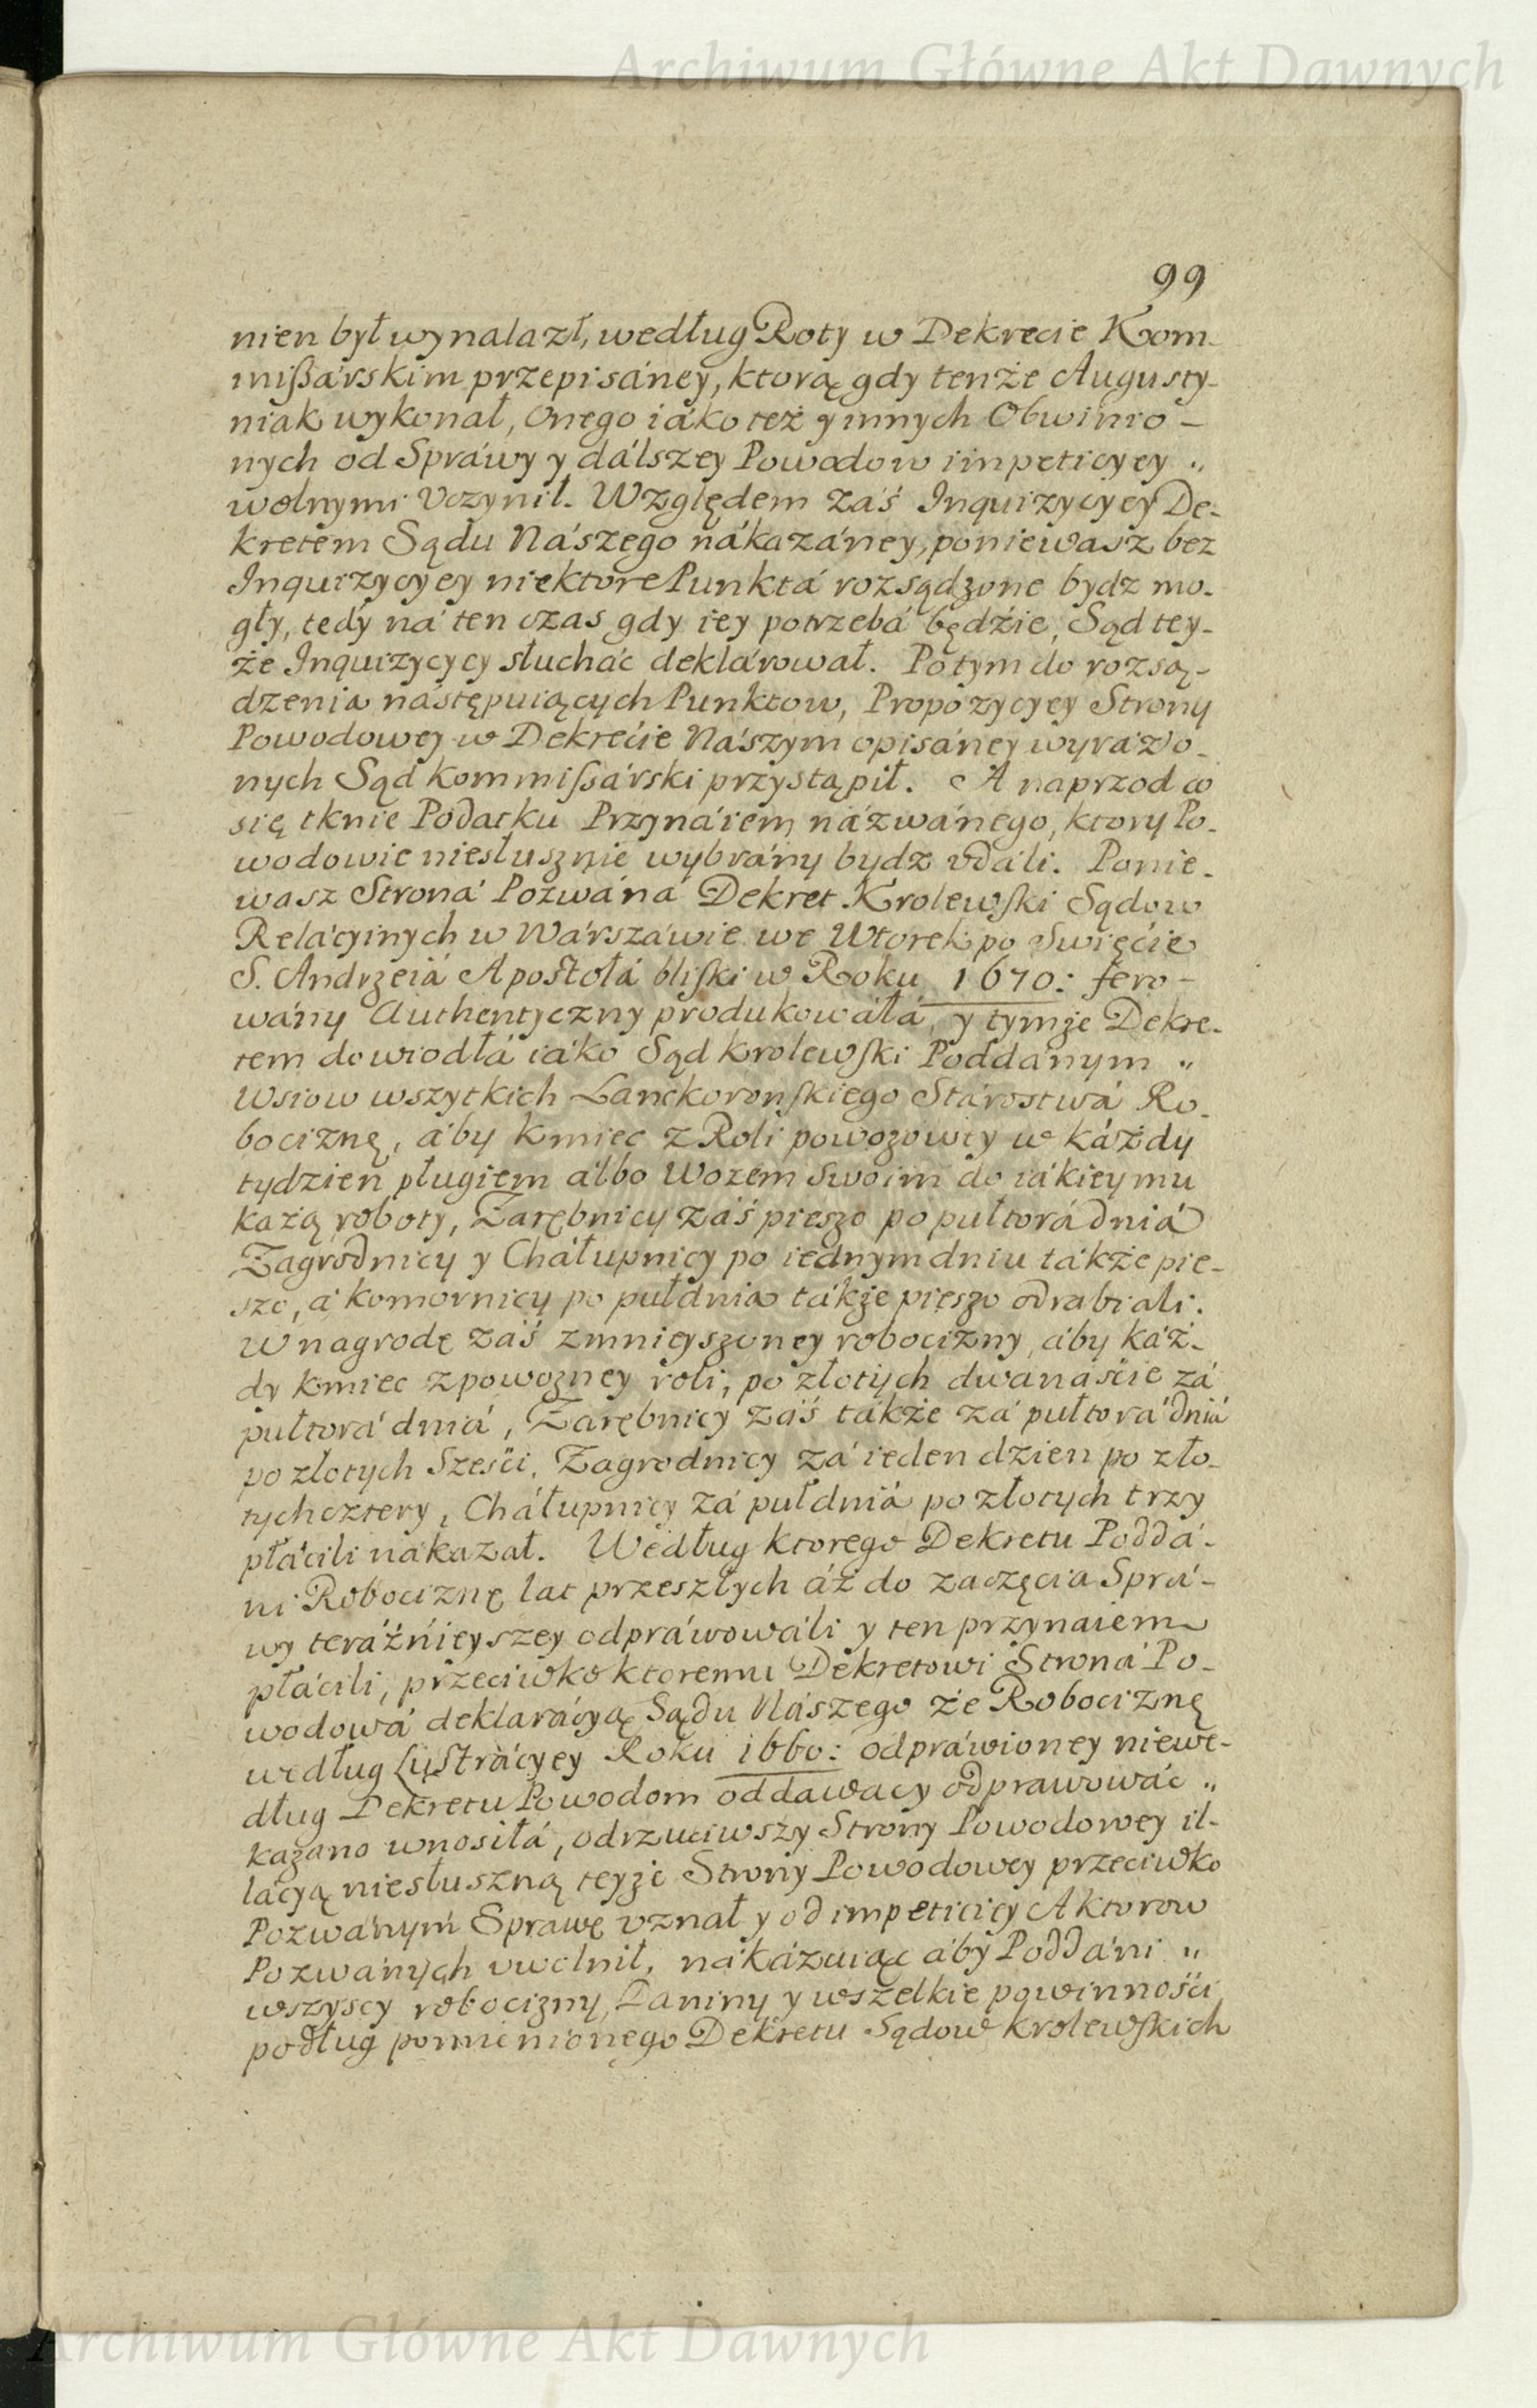 Archiwum Główne Akt Dawnych
99
nien był wynalazł, według Roty w Dekrecie Kom-
mißárskim przepisáney, ktorą gdy tenże Augusty-
niak wykonał, onego iáko też y innych Obwinio-
nych od Spráwy y dálszey Powodow impeticyey „
wolnymi Vczynił. Względem záś Inquizycyey De-
kretem Sądu Nászego nákazáney, poniewasz bez
Inquizycyey niektore Punktá rozsądzone bydz mo-
gły, tedy ná ten czas gdy iey potrzebá będźie, Sąd tey-
że Inquizycycy słucháć deklárował. Potym do rozsą-
dzenia nástępuiących Punktow, Propozycyey Strony
Powodowey w Dekrećie Nászym opisáney wyrázo-
nych Sąd Kommiſsárski przystąpił. A naprzod co
się tknie Podatku Przynáiem názwánego, ktory Po-
wodowie niesłusznie wybrány bydz vdáli. Ponie-
wasz Stroná Pozwáná Dekret Krolewſki Sądow
Relácyinych w Wárszáwie we Wtorek po Swięćie
S. Andrzeiá Apostołá bliſki w Roku 1670: fero-
wány Authentyczny produkowáłá, y tymże Dekre-
tem dowiodłá iáko Sąd Krolewſki Poddánym „
Wsiow wszytkich Lanckoronſkiego Stárostwá Ro-
boćiznę, áby Kmiec z Roli powozowey w káżdy
tydzien pługiem álbo Wozem swoim do iákiey mu
każą roboty, Zarębnicy záś pieszo po pułtorá dniá
Zagrodnicy y Cháłupnicy po iednym dniu tákże pie-
szo, á komornicy po pułdnia tákże pieszo odrabiali.
W nagrodę záś zmnieyszoney robocizny, áby káż-
dy kmiec z powozney roli, po złotych dwanaśćie zá
pułtorá dniá, Zarębnicy záś tákże zá pułtorá dniá
po złotych Sześći, Zagrodnicy zá ieden dzien po zło-
tych cztery, Cháłupnicy zá pułdniá po złotych trzy
płáćili nákazał. Według ktorego Dekretu Poddá-
ni Robociznę lat przeszłych áż do zaczęcia Sprá-
wy teráźnieyszey odpráwowáli y ten przynaiem
płáćili, przeciwko ktoremu Dekretowi Stroná Po-
wodowá deklarácyą Sądu Nászego że Robociznę
według Lustrácyey Roku 1660: odpráwioney niewe-
dług Dekretu Powodom oddawacy odprawowáć „
kazano wnosiłá, odrzuciwszy Strony Powodowey il-
lácyą niesłuszną teyże Strony Powodowey przeciwko
Pozwánym Sprawę vznał y od impeticiey Aktorow
Pozwánych vwolnił, nákázuiąc áby Poddáni „
wszyscy robocizny, Daniny y wszelkie powinnośći
podług pomienionego Dekretu Sądow Krolewſkich
Archiwum Główne Akt Dawnych